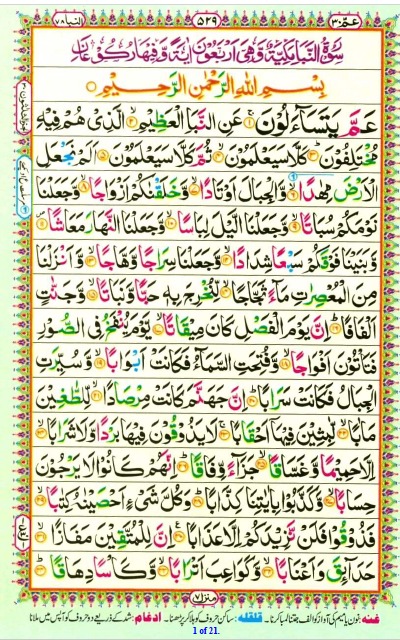 عمّ ۳۰ ۵۲۹ النبا ۷۸
سُوْرَةُ النَّبَاِ مَكِّيَّةٌ وَّهِيَ اَرْبَعُوْنَ اٰيَةً وَّفِيْهَا رُكُوْعَانِ
بِسْمِ اللّٰهِ الرَّحْمٰنِ الرَّحِيْمِ
عَمَّ يَتَسَآءَلُوْنَ ۱ عَنِ النَّبَاِ الْعَظِيْمِ ۲ الَّذِيْ هُمْ فِيْهِ
مُخْتَلِفُوْنَ ۳ كَلَّا سَيَعْلَمُوْنَ ۴ ثُمَّ كَلَّا سَيَعْلَمُوْنَ ۵ اَلَمْ نَجْعَلِ
الْاَرْضَ مِهٰدًا ۶ وَّالْجِبَالَ اَوْتَادًا ۷ وَّخَلَقْنٰكُمْ اَزْوَاجًا ۸ وَّجَعَلْنَا
نَوْمَكُمْ سُبَاتًا ۹ وَّجَعَلْنَا الَّيْلَ لِبَاسًا ۱۰ وَّجَعَلْنَا النَّهَارَ مَعَاشًا ۱۱
وَّبَنَيْنَا فَوْقَكُمْ سَبْعًا شِدَادًا ۱۲ وَّجَعَلْنَا سِرَاجًا وَّهَّاجًا ۱۳ وَّاَنْزَلْنَا
مِنَ الْمُعْصِرٰتِ مَآءً ثَجَّاجًا ۱۴ لِّنُخْرِجَ بِهٖ حَبًّا وَّنَبَاتًا ۱۵ وَّجَنّٰتٍ
اَلْفَافًا ۱۶ اِنَّ يَوْمَ الْفَصْلِ كَانَ مِيْقَاتًا ۱۷ يَّوْمَ يُنْفَخُ فِي الصُّوْرِ
فَتَاْتُوْنَ اَفْوَاجًا ۱۸ وَّفُتِحَتِ السَّمَآءُ فَكَانَتْ اَبْوَابًا ۱۹ وَّسُيِّرَتِ
الْجِبَالُ فَكَانَتْ سَرَابًا ۲۰ اِنَّ جَهَنَّمَ كَانَتْ مِرْصَادًا ۲۱ لِّلطّٰغِيْنَ
مَاٰبًا ۲۲ لّٰبِثِيْنَ فِيْهَآ اَحْقَابًا ۲۳ لَا يَذُوْقُوْنَ فِيْهَا بَرْدًا وَّلَا شَرَابًا ۲۴
اِلَّا حَمِيْمًا وَّغَسَّاقًا ۲۵ جَزَآءً وِّفَاقًا ۲۶ اِنَّهُمْ كَانُوْا لَا يَرْجُوْنَ
حِسَابًا ۲۷ وَّكَذَّبُوْا بِاٰيٰتِنَا كِذَّابًا ۲۸ وَكُلَّ شَيْءٍ اَحْصَيْنٰهُ كِتٰبًا ۲۹
فَذُوْقُوْا فَلَنْ نَّزِيْدَكُمْ اِلَّا عَذَابًا ۳۰ اِنَّ لِلْمُتَّقِيْنَ مَفَازًا ۳۱
حَدَآئِقَ وَاَعْنَابًا ۳۲ وَّكَوَاعِبَ اَتْرَابًا ۳۳ وَّكَاْسًا دِهَاقًا ۳۴
منزل ۷
غنہ: نون یا میم کی آواز کو الف جتنا لمبا کرنا۔ قلقلہ: ساکن حروف کو ہلا کر پڑھنا۔ ادغام: شد کے ذریعے دو حروف کو آپس میں ملانا
1 of 21.